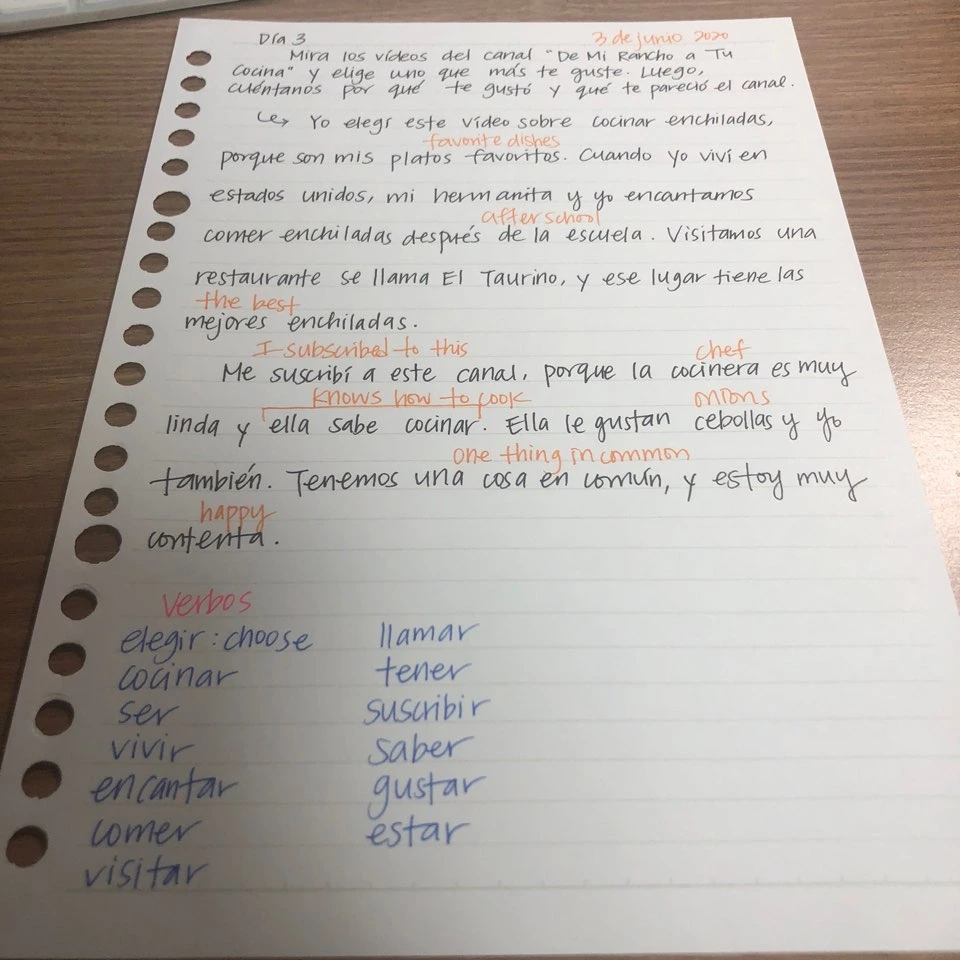 Día 3 3 de junio 2020
Mira los vídeos del canal "De Mi Rancho a Tu
Cocina" y elige uno que más te guste. Luego,
cuéntanos por qué te gustó y qué te pareció el canal.
↳ Yo elegí este vídeo sobre cocinar enchiladas,
favorite dishes
porque son mis platos favoritos. Cuando yo viví en
estados unidos, mi hermanita y yo encantamos
after school
comer enchiladas después de la escuela. Visitamos una
restaurante se llama El Taurino, y ese lugar tiene las
the best
mejores enchiladas.
I subscribed to this chef
Me suscribí a este canal, porque la cocinera es muy
knows how to cook onions
linda y ella sabe cocinar. Ella le gustan cebollas y yo
one thing in common
también. Tenemos una cosa en común, y estoy muy
happy
contenta.
verbos
elegir : choose llamar
cocinar tener
ser suscribir
vivir saber
encantar gustar
comer estar
visitar